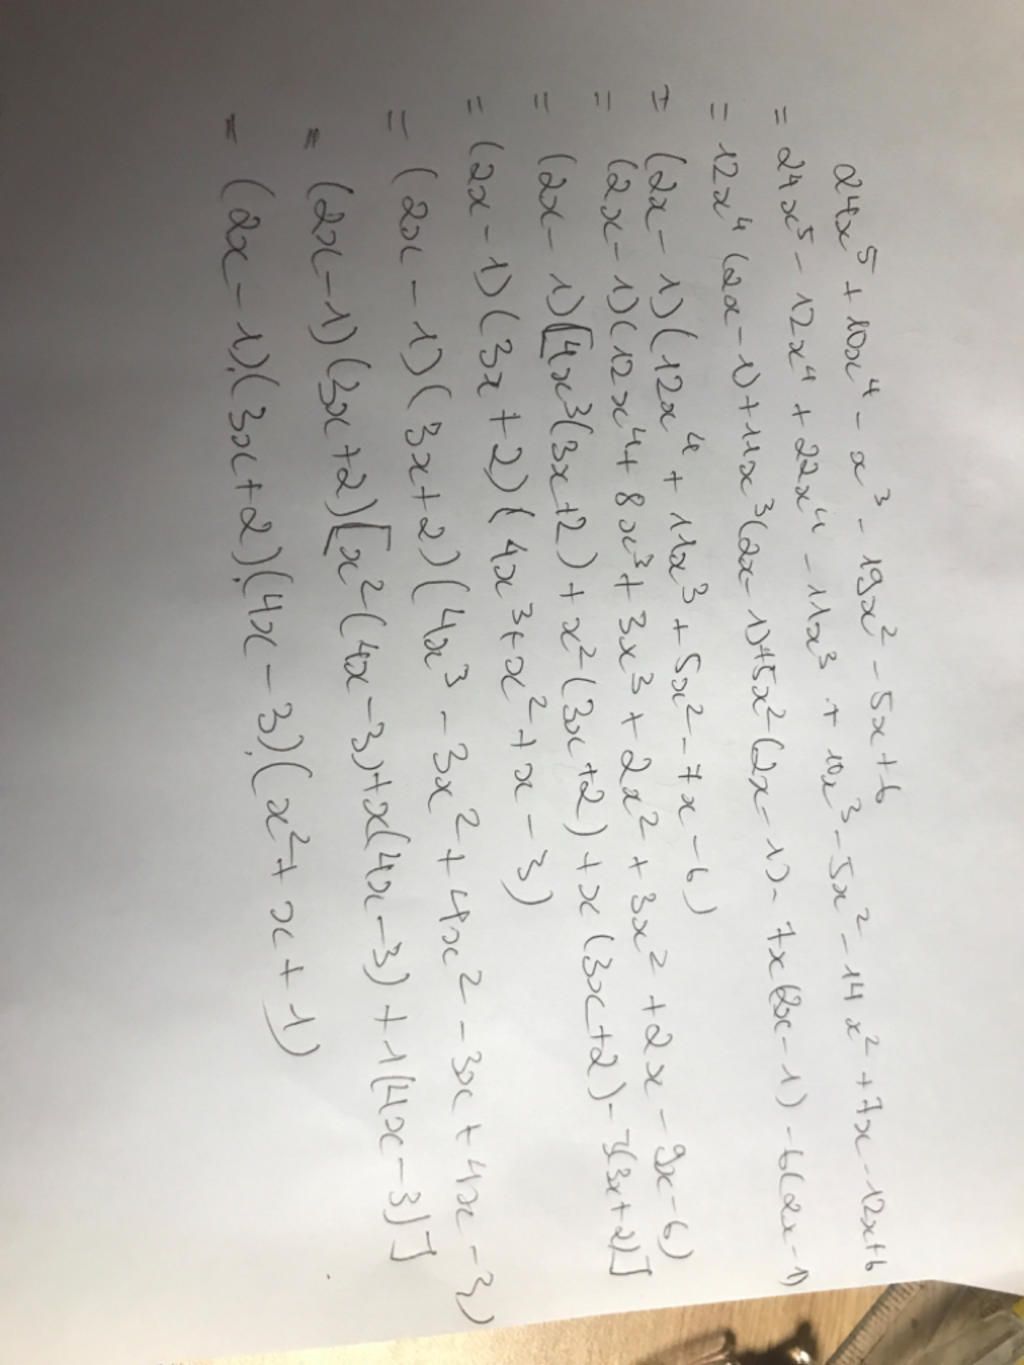 24x⁵ + 10x⁴ - x³ - 19x² - 5x + 6
= 24x⁵ - 12x⁴ + 22x⁴ - 11x³ + 10x³ - 5x² - 14x² + 7x - 12x + 6
= 12x⁴ (2x - 1) + 11x³ (2x - 1) + 5x² (2x - 1) - 7x (2x - 1) - 6 (2x - 1)
= (2x - 1) (12x⁴ + 11x³ + 5x² - 7x - 6)
= (2x - 1) (12x⁴ + 8x³ + 3x³ + 2x² + 3x² + 2x - 9x - 6)
= (2x - 1) [4x³ (3x + 2) + x² (3x + 2) + x (3x + 2) - 3 (3x + 2)]
= (2x - 1) (3x + 2) (4x³ + x² + x - 3)
= (2x - 1) (3x + 2) (4x³ - 3x² + 4x² - 3x + 4x - 3)
= (2x - 1) (3x + 2) [x² (4x - 3) + x (4x - 3) + 1 (4x - 3)]
= (2x - 1).(3x + 2).(4x - 3).(x² + x + 1)